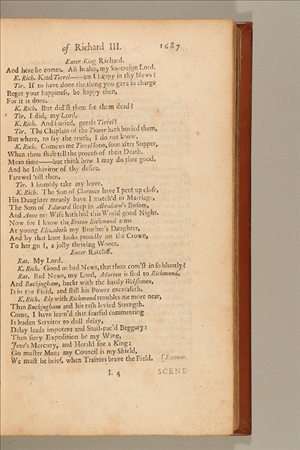 of Richard III. 1687
Enter King Richard.
And here he comes. All health, my Sovereign Lord.
K. Rich. Kind Tirrel——am I happy in thy News?
Tir. If to have done the thing you gave in charge
Beget your happiness, be happy then,
For it is done.
K. Rich. But did'st thou see them dead?
Tir. I did, my Lord.
K. Rich. And buried, gentle Tirrel?
Tir. The Chaplain of the Tower hath buried them,
But where, to say the truth, I do not know.
K. Rich. Come to me Tirrel soon, soon after Supper,
When thou shalt tell the process of their Death.
Mean time——but think how I may do thee good,
And be Inheritor of thy desire.
Farewel 'till then.
Tir. I humbly take my leave.
K. Rich. The Son of Clarence have I pent up close,
His Daughter meanly have I match'd in Marriage,
The Sons of Edward sleep in Abraham's Bosom,
And Anne my Wife hath bid this World good Night.
Now for I know the Britain Richmond aims
At young Elizabeth my Brother's Daughter,
And by that knot looks proudly on the Crown,
To her go I, a jolly thriving Wooer.
Enter Ratcliff.
Rat. My Lord.
K. Rich. Good or bad News, that thou com'st in so bluntly?
Rat. Bad News, my Lord, Morton is fled to Richmond,
And Buckingham, backt with the hardy Welshmen,
Is in the Field, and still his Power encreaseth.
K. Rich. Ely with Richmond troubles me more near,
Than Buckingham and his rash levied Strength.
Come, I have learn'd that fearful commenting
Is leaden Servitor to dull delay,
Delay leads impotent and Snail-pac'd Beggary:
Then fiery Expedition be my Wing,
Jove's Mercury, and Herald for a King:
Go muster Men; my Council is my Shield,
We must be brief, when Traitors brave the Field. [Exeunt.
I. 4 SCENE